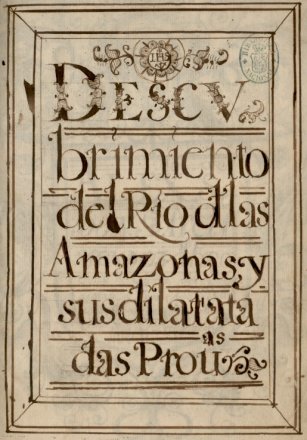 IHS
DESCV
brimiento
del Rio dlas
Amazonas, y
sus dilatata
das Prouas